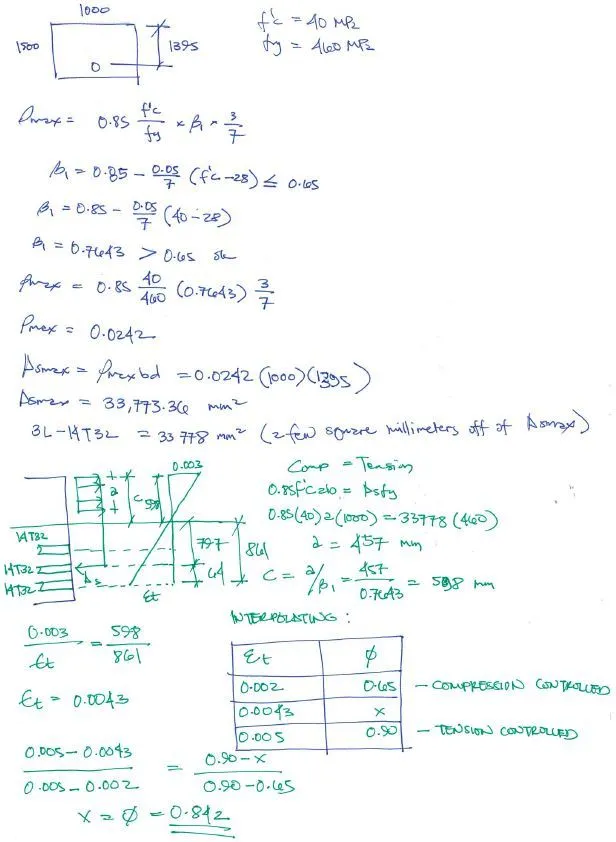 1000
f'c = 40 MPa
fy = 460 MPa
1500
1395
ρmax = 0.85 f'c/fy × β1 × 3/7
β1 = 0.85 - 0.05/7 (f'c - 28) ≤ 0.65
β1 = 0.85 - 0.05/7 (40 - 28)
β1 = 0.7643 > 0.65 ok
ρmax = 0.85 40/460 (0.7643) 3/7
ρmax = 0.0242
Asmax = ρmax bd = 0.0242 (1000)(1395)
Asmax = 33,773.36 mm²
3L-14T32 = 33778 mm² (a few square millimeters off of Asmax)
0.003
a
C
598
14T32
14T32
14T32
As
797
64
861
εt
Comp = Tension
0.85f'cab = Asfy
0.85(40)a(1000) = 33778(460)
a = 457 mm
C = a/β1 = 457/0.7643 = 598 mm
0.003/εt = 598/861
εt = 0.0043
INTERPOLATING :
εt ϕ
0.002 0.65 - COMPRESSION CONTROLLED
0.0043 x
0.005 0.90 - TENSION CONTROLLED
0.005 - 0.0043 / 0.005 - 0.002 = 0.90 - x / 0.90 - 0.65
x = ϕ = 0.842